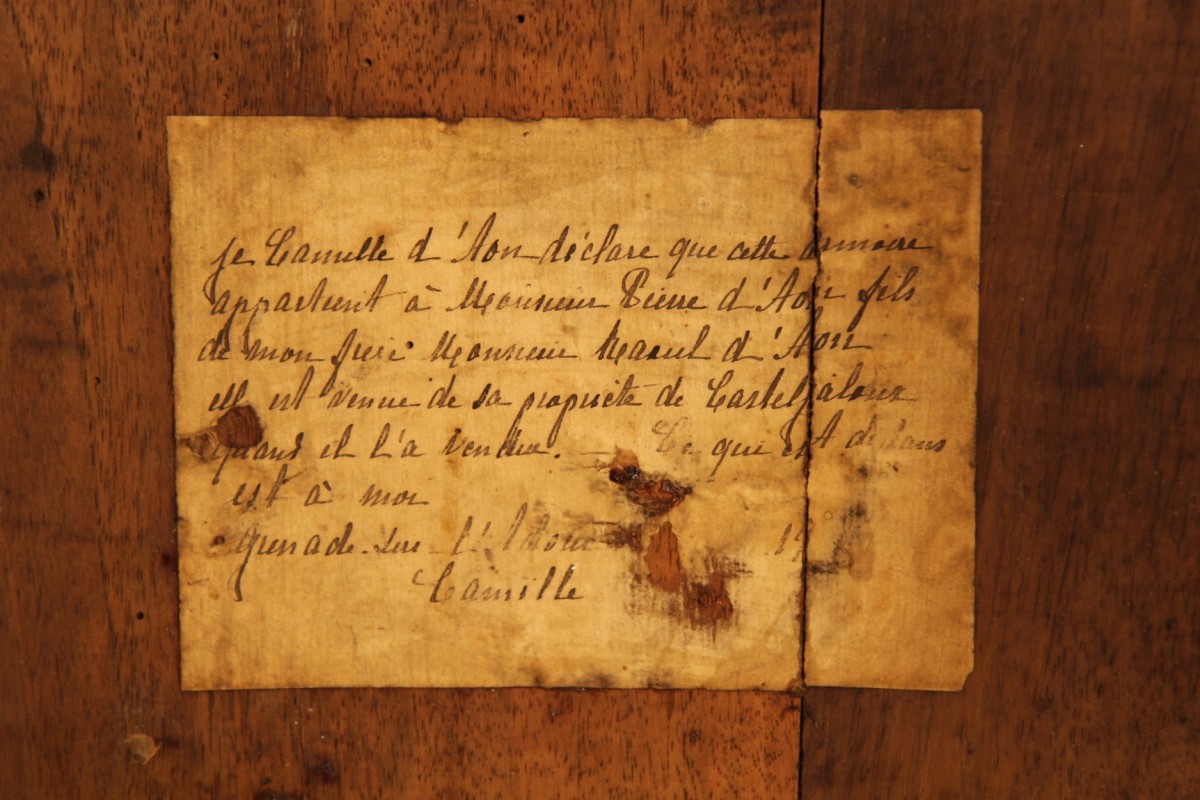 je Camille d'Aon déclare que cette armoire
appartient à Monsieur Pierre d'Aon fils
de mon frère Monsieur d'Aon
elle est venue de sa propriété de Casteljaloux
quand il l'a vendue. — Ce qui est dedans
est à moi
Grenade-sur-l'Adour 19
Camille